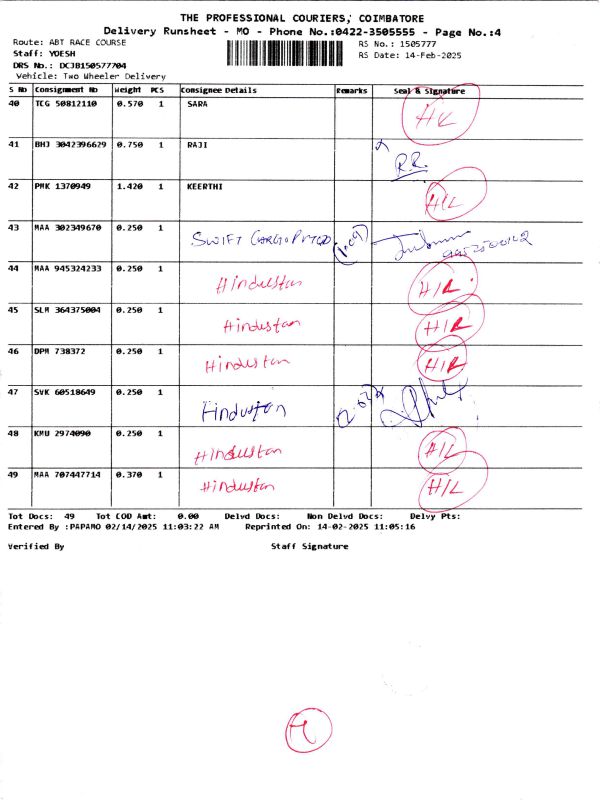 THE PROFESSIONAL COURIERS, COIMBATORE
Delivery Runsheet - MO - Phone No.:0422-3505555 - Page No.:4
Route: ABT RACE COURSE
RS No.: 1505777
Staff: YOESH
RS Date: 14-Feb-2025
DRS No.: DCJB150577704
Vehicle: Two Wheeler Delivery
S No Consignment No Weight PCS Consignee Details Remarks Seal & Signature
40 TCG 50812110 0.570 1 SARA H/L
41 BHJ 3042396629 0.750 1 RAJI R.R.
42 PMK 1370949 1.420 1 KEERTHI H/L
43 MAA 302349670 0.250 1 SWIFT CARGO PVT LTD
44 MAA 945324233 0.250 1 Hindustan H/L
45 SLM 364375004 0.250 1 Hindustan H/L
46 DPM 738372 0.250 1 Hindustan H/L
47 SVK 60518649 0.250 1 Hindustan
48 KMU 2974090 0.250 1 Hindustan H/L
49 MAA 707447714 0.370 1 Hindustan H/L
Tot Docs: 49 Tot COD Amt: 0.00 Delvd Docs: Non Delvd Docs: Delvy Pts:
Entered By :PAPAMO 02/14/2025 11:03:22 AM Reprinted On: 14-02-2025 11:05:16
Verified By Staff Signature
H